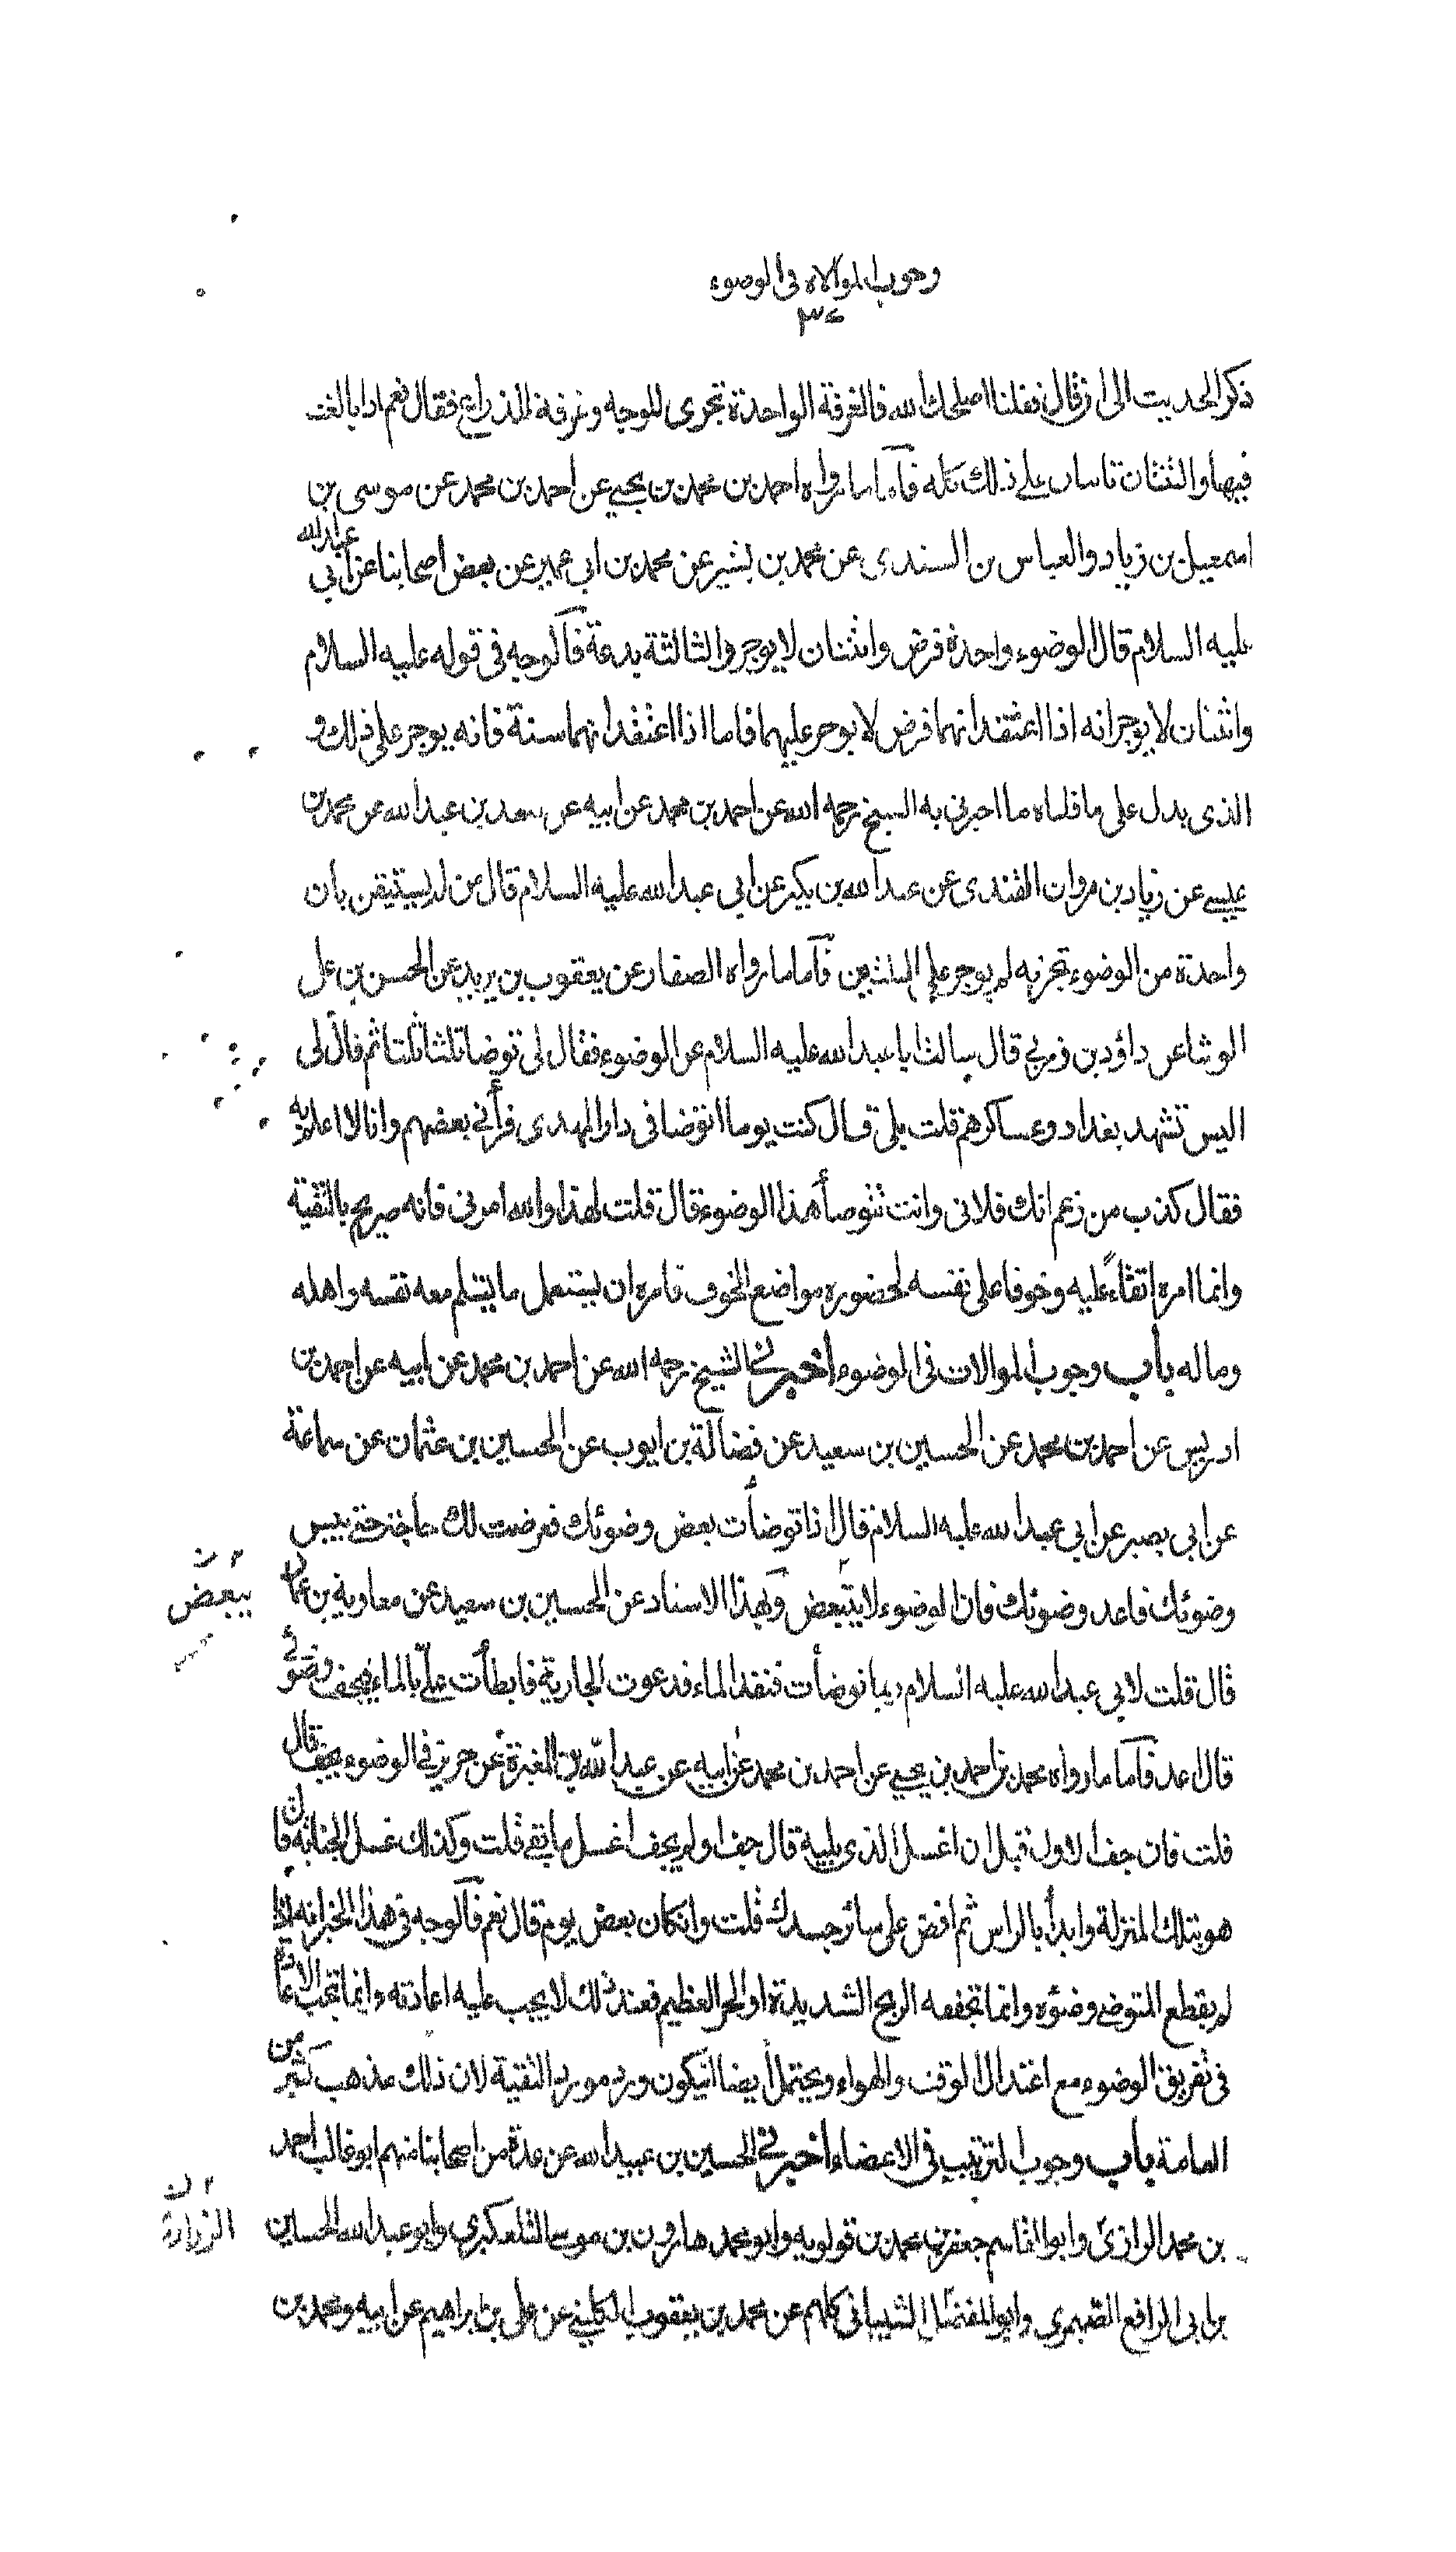 وجوب الموالاه في الوضوء
٣٤
ذكر الحديث الى ان قال فقلنا اصلحك الله فالغرفة الواحدة تجزى للوجه وغرفة للذراع فقال نعم اذا بالغت
فيها والثنتان تاتيان على ذلك كله فاما ما رواه احمد بن محمد بن يحيى عن احمد بن محمد عن موسى بن
اسمعيل بن زياد والعباس بن السندى عن محمد بن بشير عن محمد بن ابى عمير عن بعض اصحابنا عن ابى عبد الله
عليه السلام قال الوضوء واحدة فرض واثنتان لا يوجر والثالثة بدعة فالوجه فى قوله عليه السلام
واثنتان لا يوجر انه اذا اعتقد انهما فرض لا يوجر عليهما فاما اذا اعتقد انهما سنة فانه يوجر على ذلك و
الذى يدل على ما قلناه ما اخبرنى به الشيخ رحمه الله عن احمد بن محمد عن ابيه عن سعد بن عبد الله عن محمد بن
عيسى عن زياد بن مروان القندى عن عبد الله بن بكير عن ابى عبد الله عليه السلام قال من لم يستيقن بان
واحدة من الوضوء تجزيه لم يوجر على الثنتين فاما ما رواه الصفار عن يعقوب بن يزيد عن الحسن بن على
الوشا عن داؤد بن زربى قال سالت ابا عبد الله عليه السلام عن الوضوء فقال لى توضا ثلثا ثلثا ثم قال لى
اليس تشهد بغداد وعساكرهم قلت بلى قال كنت يوما اتوضا فى دار المهدى فرأنى بعضهم وانا لا اعلم به
فقال كذب من زعم انك فلانى وانت تتوضأ هذا الوضوء قال قلت لهذا والله امرنى فانه صريح بالتقية
وانما امره اتقاءً عليه وخوفا على نفسه لحضوره مواضع الخوف فامره ان يستعمل ما يسلم معه نفسه واهله
وماله باب وجوب الموالات فى الوضوء اخبرنى الشيخ رحمه الله عن احمد بن محمد عن ابيه عن احمد بن
ادريس عن احمد بن محمد عن الحسين بن سعيد عن فضالة بن ايوب عن الحسين بن عثمان عن سماعة
عن ابى بصير عن ابى عبد الله عليه السلام قال اذا توضأت بعض وضوئك فعرضت لك حاجة حتى يبس
وضوئك فاعد وضوئك فان الوضوء لا يتبعض وبهذا الاسناد عن الحسين بن سعيد عن معاوية بن عمار
يبعض
قال قلت لابى عبد الله عليه السلام ربما توضأت فنفد الماء فدعوت الجارية فابطأت علىّ بالماء فيجف وضوئى
قال اعد فاما ما رواه محمد بن احمد بن يحيى عن احمد بن محمد عن ابيه عن عبد الله بن المغيرة عن حريز فى الوضوء يجف قال
قلت فان جف الاول قبل ان اغسل الذى يليه قال جف او لم يجف اغسل ما بقى قلت وكذلك غسل الجنابة قال
هو بتلك المنزلة وابدأ بالراس ثم افض على سائر جسدك قلت وان كان بعض يوم قال نعم فالوجه فى هذا الخبر انه اذا
لم يقطع المتوضى وضوءه وانما تجففه الريح الشديدة او الحر العظيم فعند ذلك لا يجب عليه اعادته وانما تجب الاعادة
فى تفريق الوضوء مع اعتدال الوقت والهواء ويحتمل ايضا ان يكون ورد مورد التقية لان ذلك مذهب كثير من
العامة باب وجوب الترتيب فى الاعضاء اخبرنى الحسين بن عبيد الله عن عدة من اصحابنا منهم ابو غالب احمد
بن محمد الرازىّ وابو القاسم جعفر بن محمد بن قولويه وابو محمد هارون بن موسى التلعكبرى وابو عبد الله الحسين
الزرارى
بن ابى الرافع الصيمرى وابو المفضل الشيبانى كلهم عن محمد بن يعقوب الكلينى عن على بن ابراهيم عن ابيه ومحمد بن